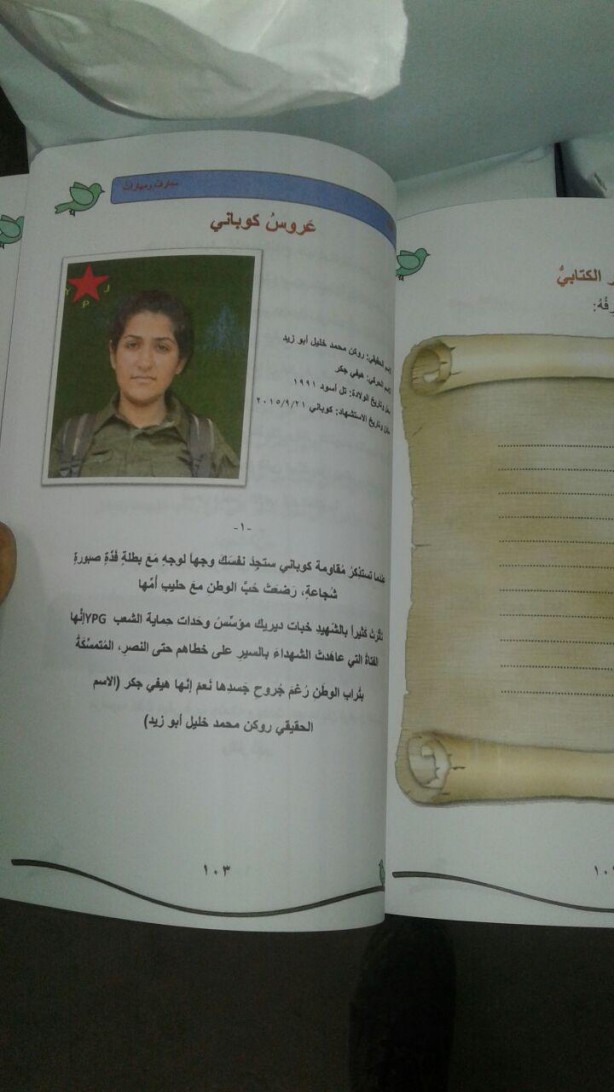 عَروسُ كوباني
Y P J
الحقيقي: روكن محمد خليل أبو زيد
الحركي: هيفي جكر
وتاريخ الولادة: تل أسود ١٩٩١
وتاريخ الاستشهاد: كوباني ٢٠١٥/٩/٢١
-١-
عندما تستذكرُ مُقاومة كوباني ستجِدُ نفسَكَ وجهاً لوجهٍ مَعَ بطلةٍ فذّةٍ صبورةٍ
شُجاعةٍ، رَضعَتْ حُبَّ الوطنِ معَ حليب أمّها
تأثرتْ كثيراً بالشّهيدِ خبات ديريك مؤسِّسِ وحَدات حماية الشعب YPG إنّها
الفتاةُ التي عاهدتْ الشهداءَ بالسيرِ على خطاهم حتى النصر، المُتمسِّكةُ
بتُرابِ الوطَنِ رُغمَ جُروحِ جَسدِها نَعمْ إنّها هيفي جكر (الاسم
الحقيقي روكن محمد خليل أبو زيد)
١٠٣
الكتابيُّ